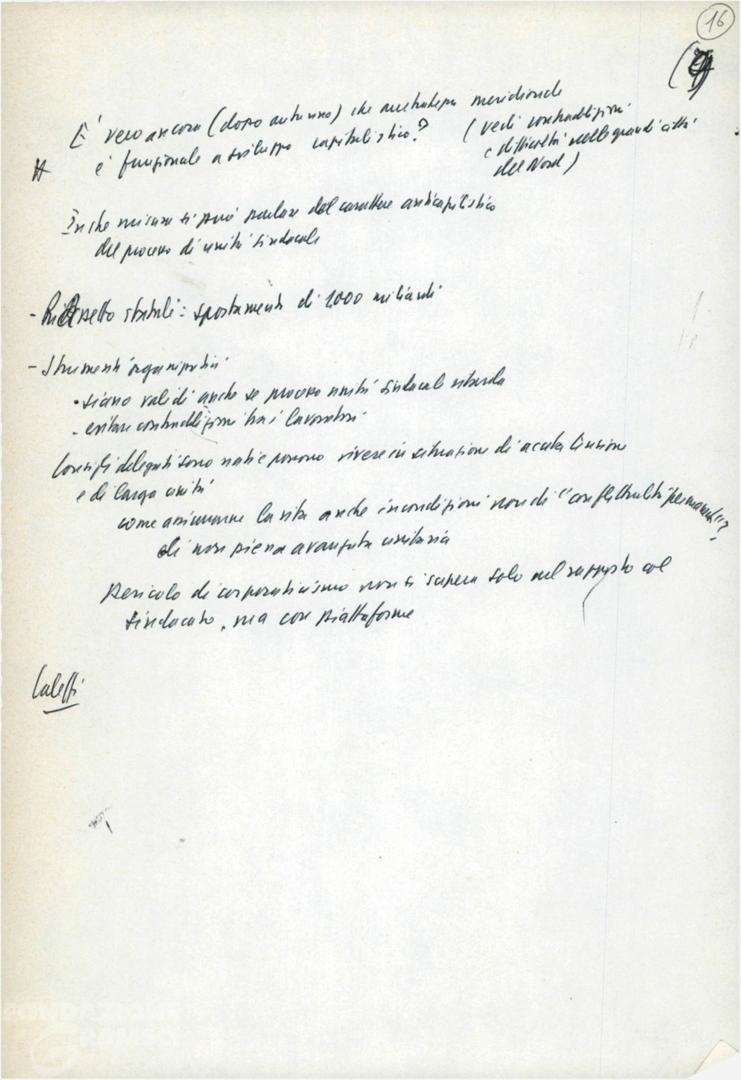 16
È vero ancora (dopo autunno) che arretratezza meridionale
è funzionale a sviluppo capitalistico?
(vedi contraddizioni
e difficoltà nelle grandi città
del Nord)
In che misura si può parlare del carattere anticapitalistico
del processo di unità sindacale
- Riassetto statali: spostamenti di 1000 miliardi
- Strumenti organizzativi
• siano validi anche se processo unità sindacale ritarda
- evitare contraddizioni tra i lavoratori
Consigli delegati sono nati e possono vivere in situazione di acuta tensione
e di larga unità
come assicurarne la vita anche in condizioni non di "conflittualità permanente"?
di non piena avanzata unitaria
Pericolo di corporativismo non si supera solo nel rapporto col
sindacato, ma con piattaforme
Caleffi
FONDAZIONE
GRAMSCI